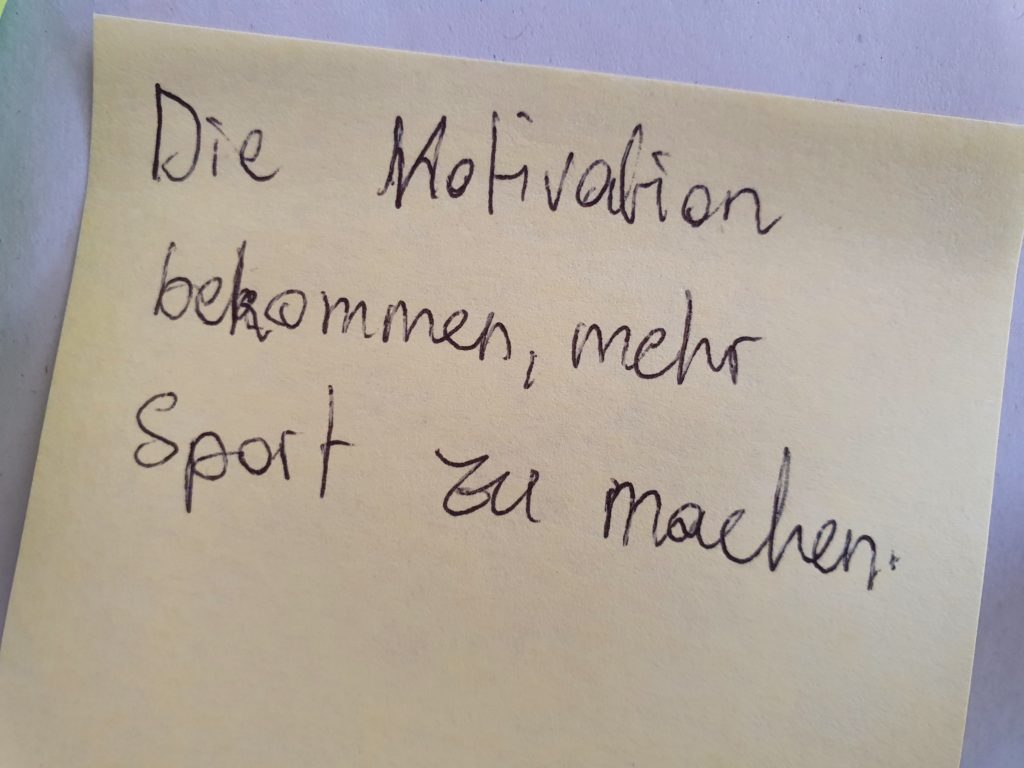 Die Motivation
bekommen, mehr
Sport zu machen.